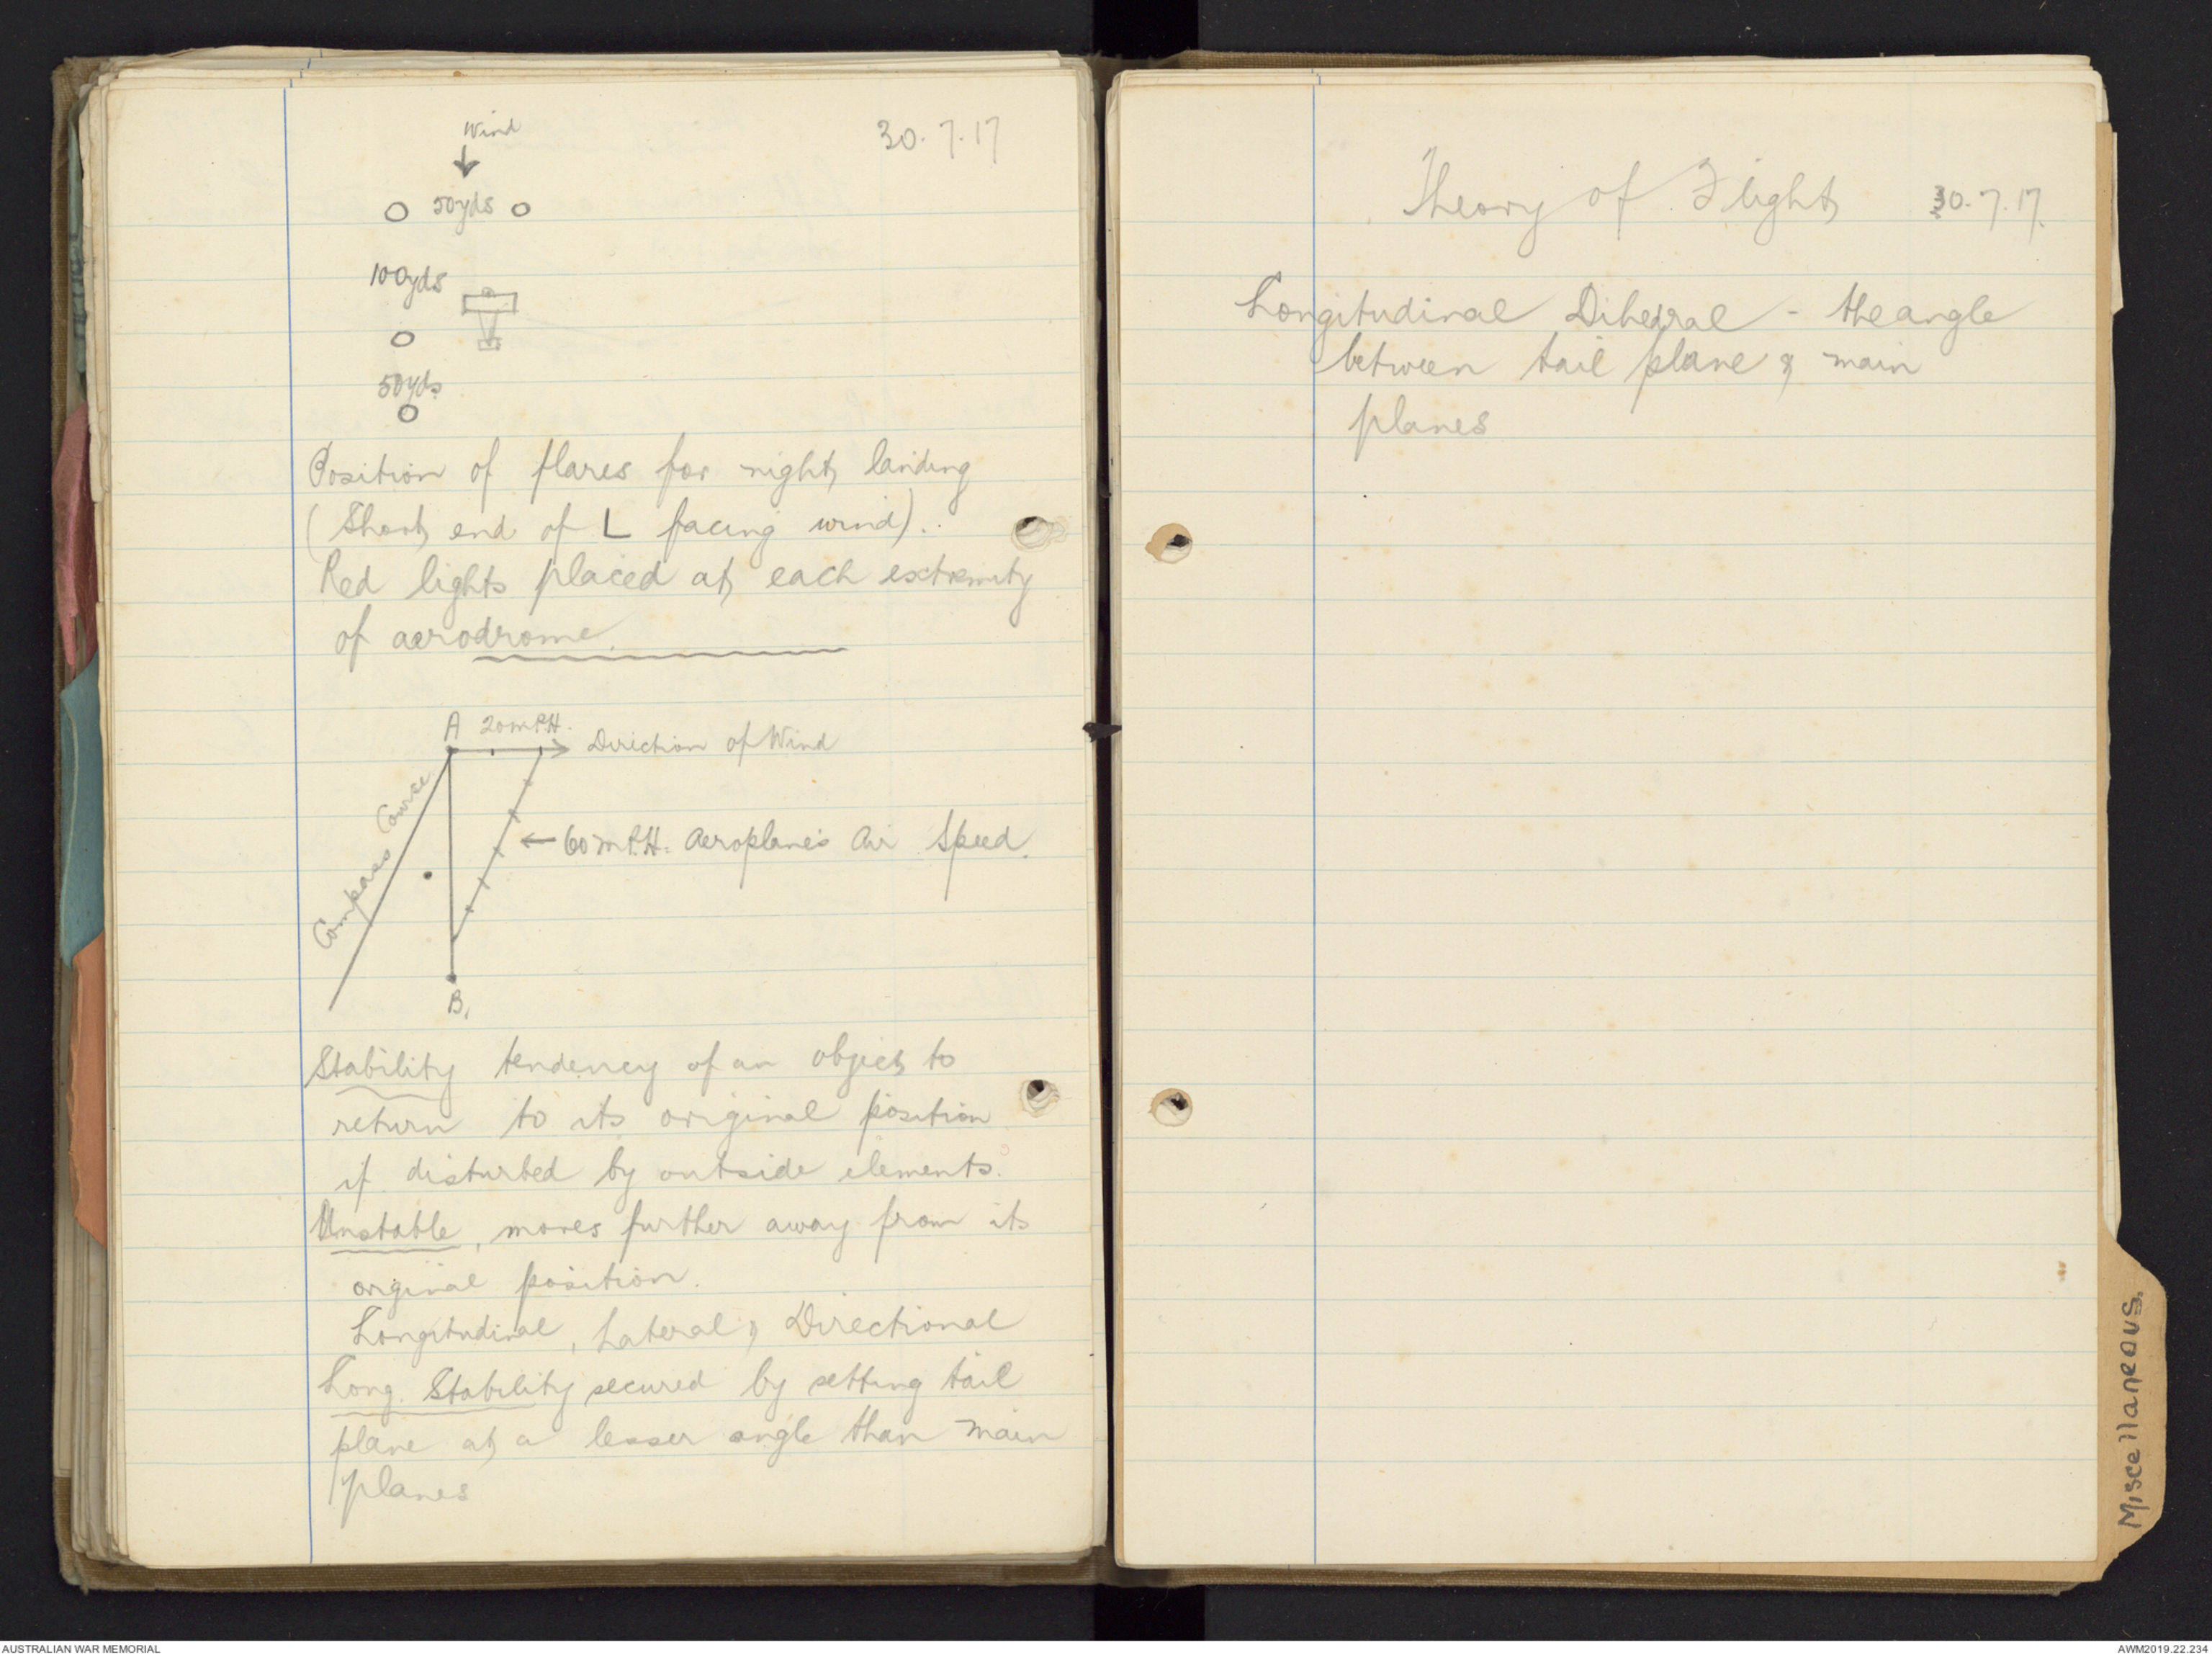 Wind
30.7.17
50yds
100yds
50yds
Position of flares for night landing
(Short end of L facing wind).
Red lights placed at each extremity
of aerodrome.
A 20 M.P.H.
Direction of Wind
Compass Cource
60 M.P.H. Aeroplane's Air Speed.
B.
Stability tendency of an object to
return to its original position
if disturbed by outside elements.
Unstable, moves further away from its
orginal position.
Longitudinal, Lateral, & Directional
Long. Stability secured by setting tail
plane at a lesser angle than main
planes
Theory of Flight 30.7.17.
Longitudinal Dihedral - the angle
between tail plane & main
planes
Miscellaneous.
AUSTRALIAN WAR MEMORIAL
AWM2019.22.234